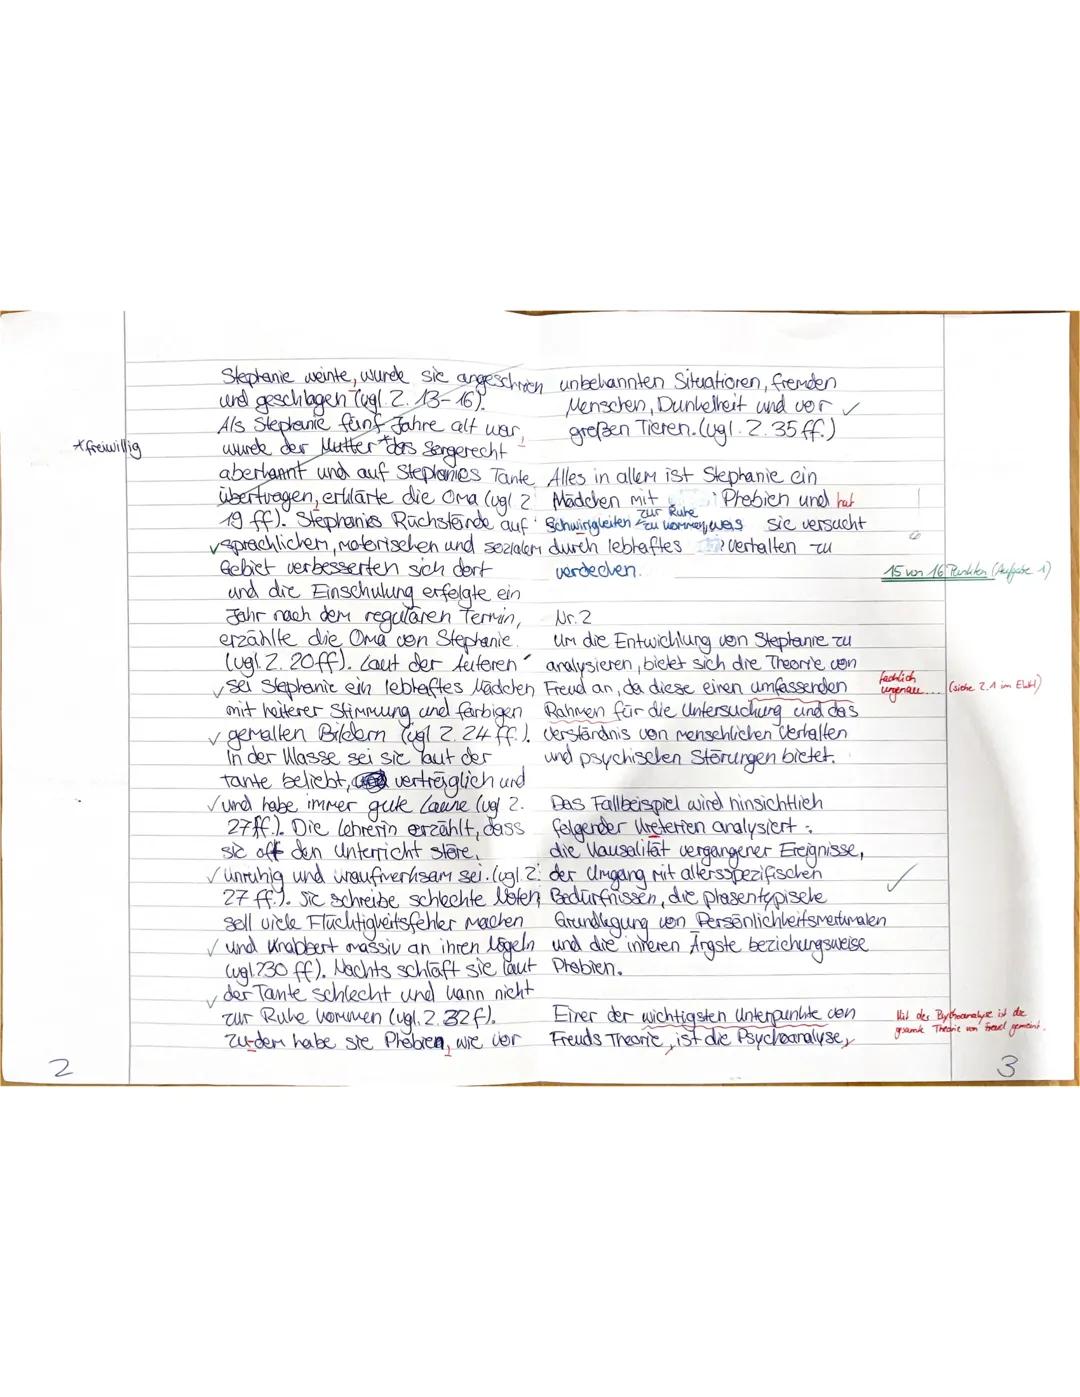 Stephanie weinte, wurde sie angeschrien
und geschlagen (vgl. Z. 13-16).
Als Stephanie fünf Jahre alt war,
*freiwillig
wurde der Mutter * das Sorgerecht
aberkannt und auf Stephanies Tante
übertragen, erklärte die Oma (vgl Z.
19 ff). Stephanies Rückstände auf
sprachlichem, motorischen und sozialem
Gebiet verbesserten sich dort
und die Einschulung erfolgte ein
Jahr nach dem regulären Termin,
erzählte die Oma von Stephanie.
(vgl. Z. 20ff). Laut der Autoren
sei Stephanie ein lebhaftes Mädchen
mit heiterer Stimmung und farbigen
gemalten Bildern (vgl Z. 24 ff.).
In der Klasse sei sie laut der
Tante beliebt, verträglich und
und habe immer gute Laune (vgl Z.
27ff.). Die Lehrerin erzählt, dass
sie oft den Unterricht störe,
unruhig und unaufmerksam sei. (vgl. Z.
27 ff.). Sie schreibe schlechte Noten,
soll viele Flüchtigkeitsfehler machen
und knabbert massiv an ihren Nägeln
(vgl. Z 30 ff). Nachts schläft sie laut
der Tante schlecht und kann nicht
zur Ruhe kommen (vgl. Z. 32 f).
Zu dem habe sie Phobien, wie vor
2
unbekannten Situationen, fremden
Menschen, Dunkelheit und vor
großen Tieren. (vgl. Z. 35 ff.)
Alles in allem ist Stephanie ein
Mädchen mit Phobien und hat
zur Ruhe
Schwirigkeiten zu kommen, was sie versucht
durch lebhaftes Verhalten zu
verdecken.
15 von 16 Punkten (Aufgabe 1)
Nr. 2
Um die Entwicklung von Stephanie zu
analysieren, bietet sich die Theorie von
Freud an, da diese einen umfassenden
fachlich
ungenau... (siehe 2.1 im EWH)
Rahmen für die Untersuchung und das
Verständnis von menschlichen Verhalten
und psychischen Störungen bietet.
Das Fallbeispiel wird hinsichtlich
folgender Kreterien analysiert:
die Kausalität vergangener Ereignisse,
der Umgang mit altersspezifischen
Bedürfnissen, die phasentypische
Grundlegung von Persönlichkeitsmerkmalen
und die inneren Ängste beziehungsweise
Phobien.
Einer der wichtigsten Unterpunkte von
Freuds Theorie, ist die Psychoanalyse,
Mit der Psychoanalyse ist die
gesamte Theorie von Freud gemeint.
3